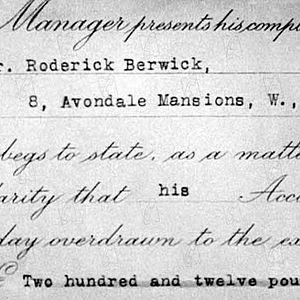 Manager presents his comp
r. Roderick Berwick,
8, Avondale Mansions, W.,
begs to state, as a matt
larity that his Acco
day overdrawn to the ex
£ Two hundred and twelve pou